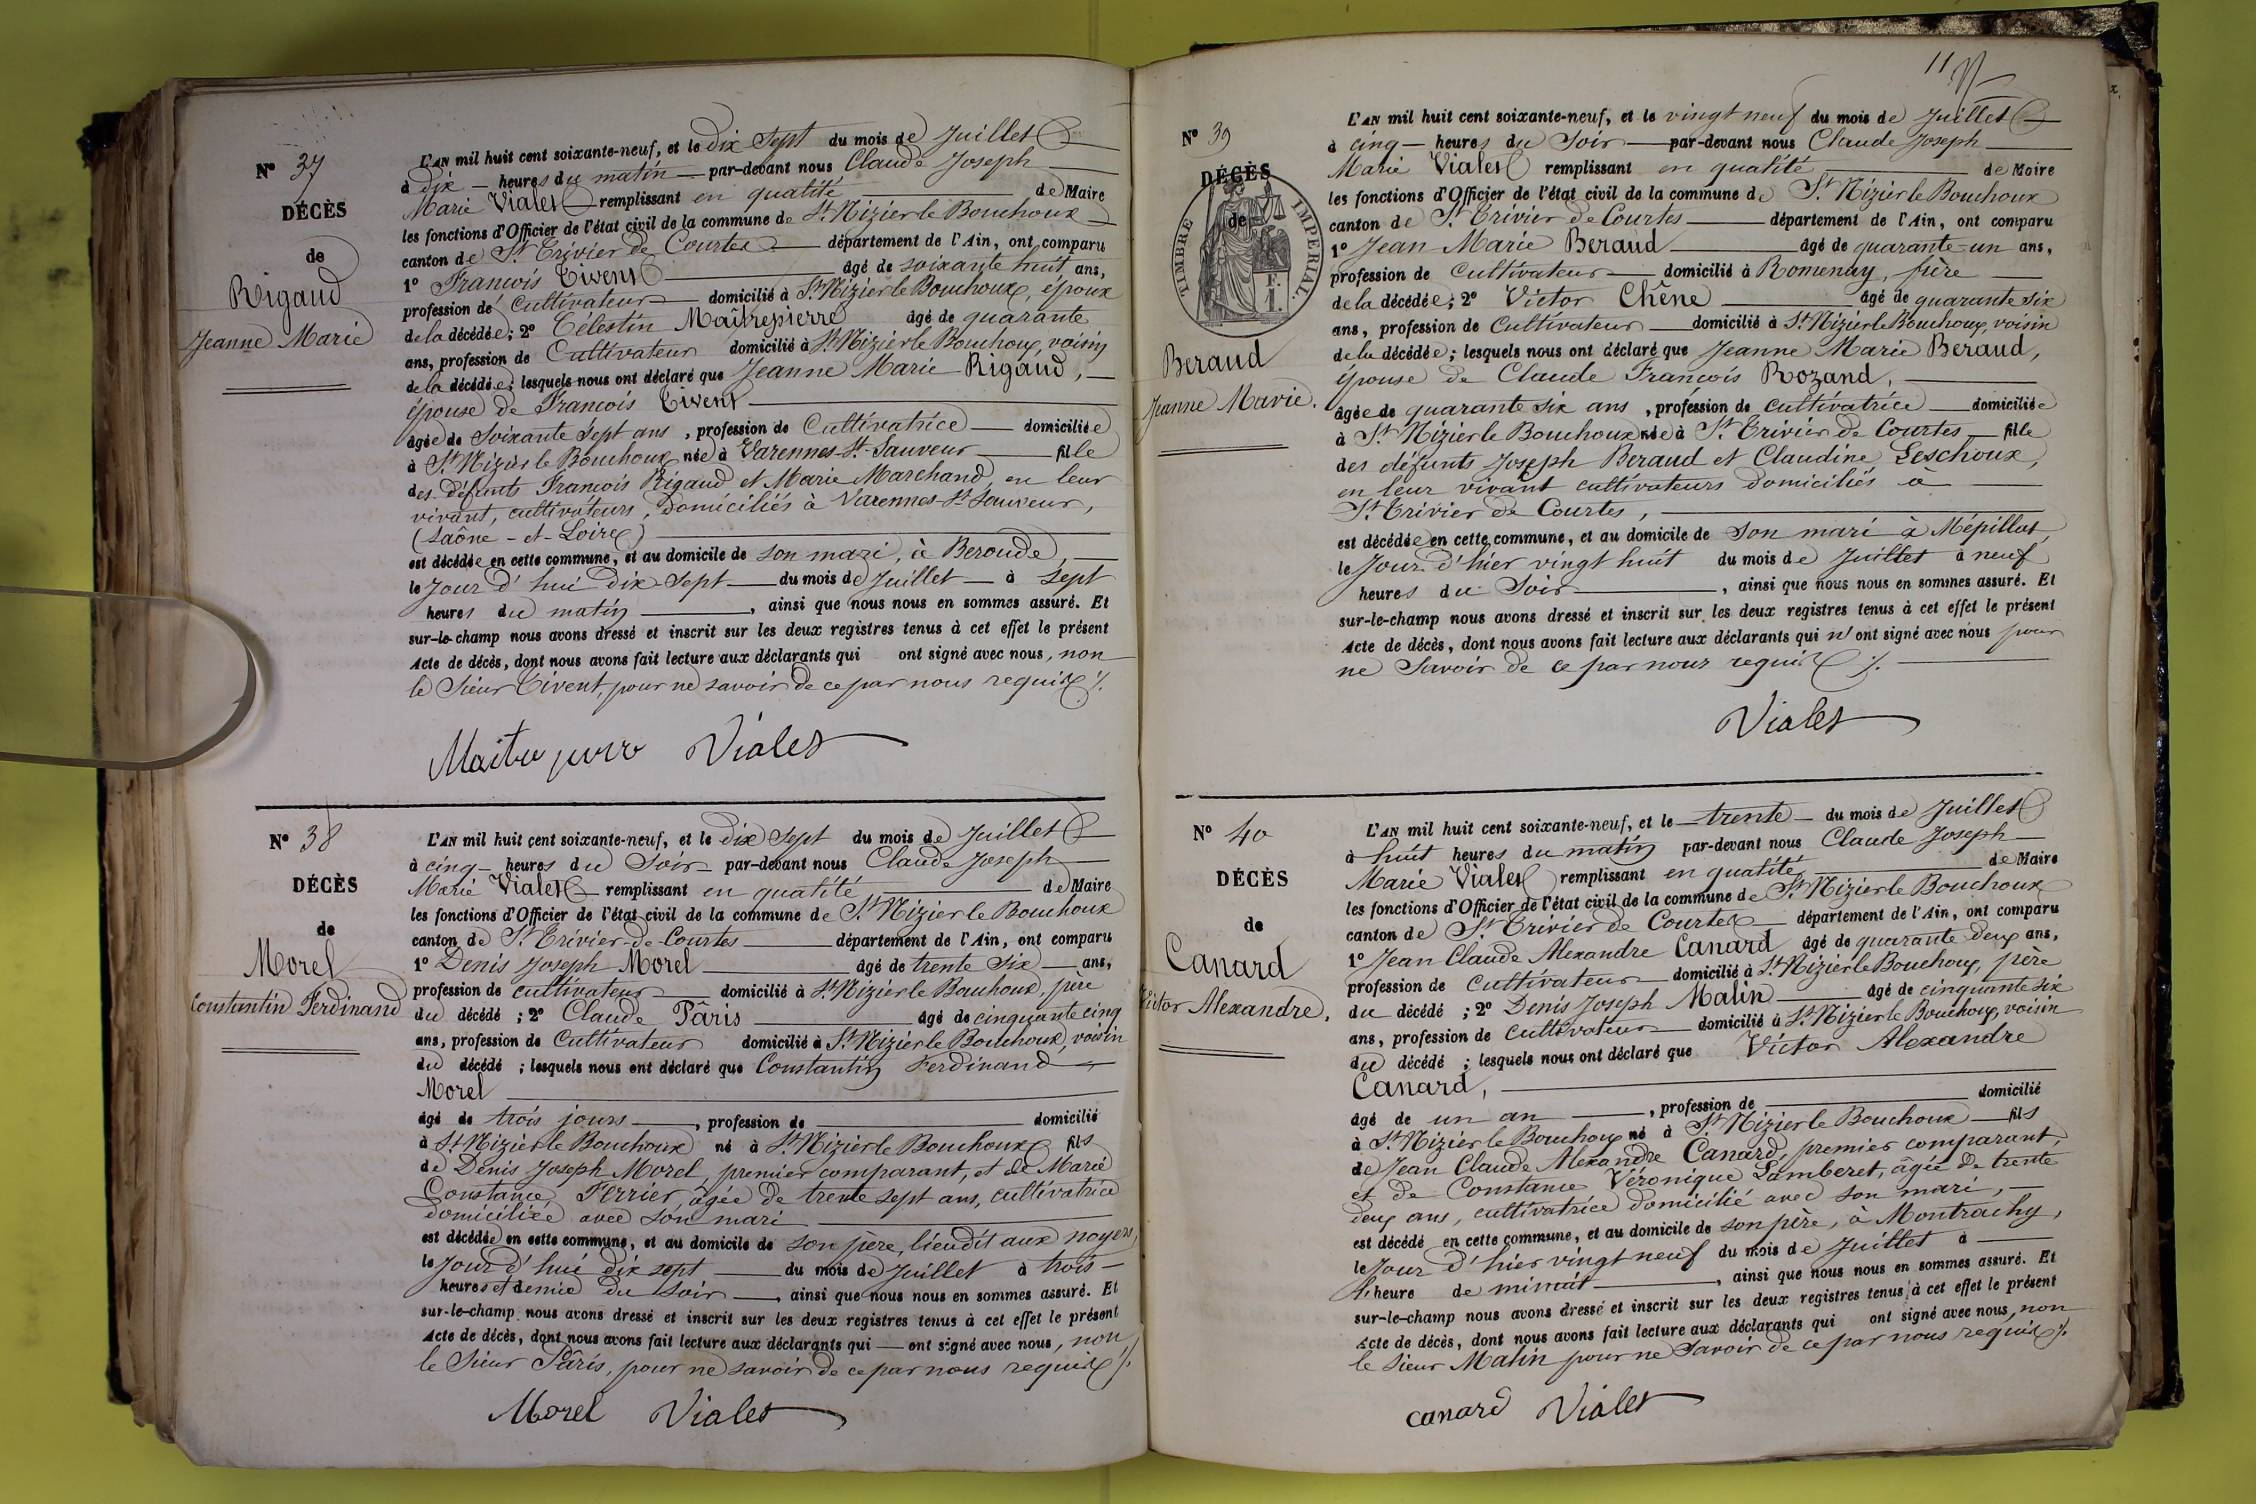 N° 37
DÉCÈS
de
Rigaud
Jeanne Marie
L'AN mil huit cent soixante-neuf, et le dix sept du mois de Juillet
à dix heures du matin par-devant nous Claude Joseph
Marie Vialet remplissant en qualité de Maire
les fonctions d'Officier de l'état civil de la commune de St Nizier le Bouchoux
canton de St Trivier de Courtes département de l'Ain, ont comparu
1° François Tivent âgé de soixante huit ans,
profession de cultivateur domicilié à St Nizier le Bouchoux, époux
de la décédée; 2° Célestin Maîtrepierre âgé de quarante
ans, profession de Cultivateur domicilié à St Nizier le Bouchoux, voisin
de la décédée; lesquels nous ont déclaré que Jeanne Marie Rigaud,
épouse de François Tivent
âgée de soixante sept ans, profession de Cultivatrice domiciliée
à St Nizier le Bouchoux née à Varennes-St-Sauveur fille
des défunts François Rigaud et Marie Marchand, en leur
vivant, cultivateurs, domiciliés à Varennes St Sauveur,
(Saône-et-Loire)
est décédée en cette commune, et au domicile de son mari, à Beroude,
le Jour d'hui dix sept du mois de Juillet à sept
heures du matin, ainsi que nous nous en sommes assuré. Et
sur-le-champ nous avons dressé et inscrit sur les deux registres tenus à cet effet le présent
Acte de décès, dont nous avons fait lecture aux déclarants qui ont signé avec nous, non
le Sieur Tivent, pour ne savoir de ce par nous requis ./.
Maitrepierre Vialet
N° 38
DÉCÈS
de
Morel
Constantin Ferdinand
L'AN mil huit cent soixante-neuf, et le dix sept du mois de Juillet
à cinq heures du Soir par-devant nous Claude Joseph
Marie Vialet remplissant en qualité de Maire
les fonctions d'Officier de l'état civil de la commune de St Nizier le Bouchoux
canton de St Trivier-de-Courtes département de l'Ain, ont comparu
1° Denis Joseph Morel âgé de trente six ans,
profession de cultivateur domicilié à St Nizier le Bouchoux, père
du décédé; 2° Claude Pâris âgé de cinquante cinq
ans, profession de Cultivateur domicilié à St Nizier le Bouchoux, voisin
du décédé; lesquels nous ont déclaré que Constantin Ferdinand
Morel
âgé de trois jours, profession de domicilié
à St Nizier le Bouchoux né à St Nizier le Bouchoux fils
de Denis Joseph Morel, premier comparant, et de Marie
Constance Ferrier, âgée de trente sept ans, cultivatrice
domiciliée avec son mari
est décédé en cette commune, et au domicile de son père, lieudit aux noyers,
le Jour d'hui dix sept du mois de Juillet à trois
heures et demie du soir, ainsi que nous nous en sommes assuré. Et
sur-le-champ nous avons dressé et inscrit sur les deux registres tenus à cet effet le présent
Acte de décès, dont nous avons fait lecture aux déclarants qui ont signé avec nous, non
le Sieur Pâris, pour ne savoir de ce par nous requis ./.
Morel Vialet
11
N° 39
DÉCÈS
de
TIMBRE IMPÉRIAL.
Beraud
Jeanne Marie.
L'AN mil huit cent soixante-neuf, et le vingt neuf du mois de Juillet
à cinq heures du Soir par-devant nous Claude Joseph
Marie Vialet remplissant en qualité de Maire
les fonctions d'Officier de l'état civil de la commune de St Nizier le Bouchoux
canton de St Trivier de Courtes département de l'Ain, ont comparu
1° Jean Marie Beraud âgé de quarante-un ans,
profession de Cultivateur domicilié à Romenay, frère
de la décédée; 2° Victor Chêne âgé de quarante six
ans, profession de Cultivateur domicilié à St Nizier le Bouchoux, voisin
de la décédée; lesquels nous ont déclaré que Jeanne Marie Beraud,
épouse de Claude François Rozand,
âgée de quarante six ans, profession de cultivatrice domiciliée
à St Nizier le Bouchoux née à St Trivier de Courtes fille
des défunts Joseph Beraud et Claudine Leschoux,
en leur vivant cultivateurs domiciliés à
St Trivier de Courtes,
est décédée en cette commune, et au domicile de son mari à Mépillat,
le Jour d'hier vingt huit du mois de Juillet à neuf
heures du Soir, ainsi que nous nous en sommes assuré. Et
sur-le-champ nous avons dressé et inscrit sur les deux registres tenus à cet effet le présent
Acte de décès, dont nous avons fait lecture aux déclarants qui n'ont signé avec nous pour
ne Savoir de ce par nous requis ./.
Vialet
N° 40
DÉCÈS
de
Canard
Victor Alexandre.
L'AN mil huit cent soixante-neuf, et le trente du mois de Juillet
à huit heures du matin par-devant nous Claude Joseph
Marie Vialet remplissant en qualité de Maire
les fonctions d'Officier de l'état civil de la commune de St Nizier le Bouchoux
canton de St Trivier de Courtes département de l'Ain, ont comparu
1° Jean Claude Alexandre Canard âgé de quarante deux ans,
profession de Cultivateur domicilié à St Nizier le Bouchoux, père
du décédé; 2° Denis Joseph Malin âgé de cinquante six
ans, profession de Cultivateur domicilié à St Nizier le Bouchoux, voisin
du décédé; lesquels nous ont déclaré que Victor Alexandre
Canard,
âgé de un an, profession de domicilié
à St Nizier le Bouchoux né à St Nizier le Bouchoux fils
de Jean Claude Alexandre Canard, premier comparant,
et de Constance Véronique Lamberet, âgée de trente
deux ans, cultivatrice domicilié avec son mari,
est décédé en cette commune, et au domicile de son père, à Montrachy,
le Jour d'hier vingt neuf du mois de Juillet à
l'heure de minuit, ainsi que nous nous en sommes assuré. Et
sur-le-champ nous avons dressé et inscrit sur les deux registres tenus à cet effet le présent
Acte de décès, dont nous avons fait lecture aux déclarants qui ont signé avec nous, non
le Sieur Malin pour ne Savoir de ce par nous requis ./.
canard Vialet